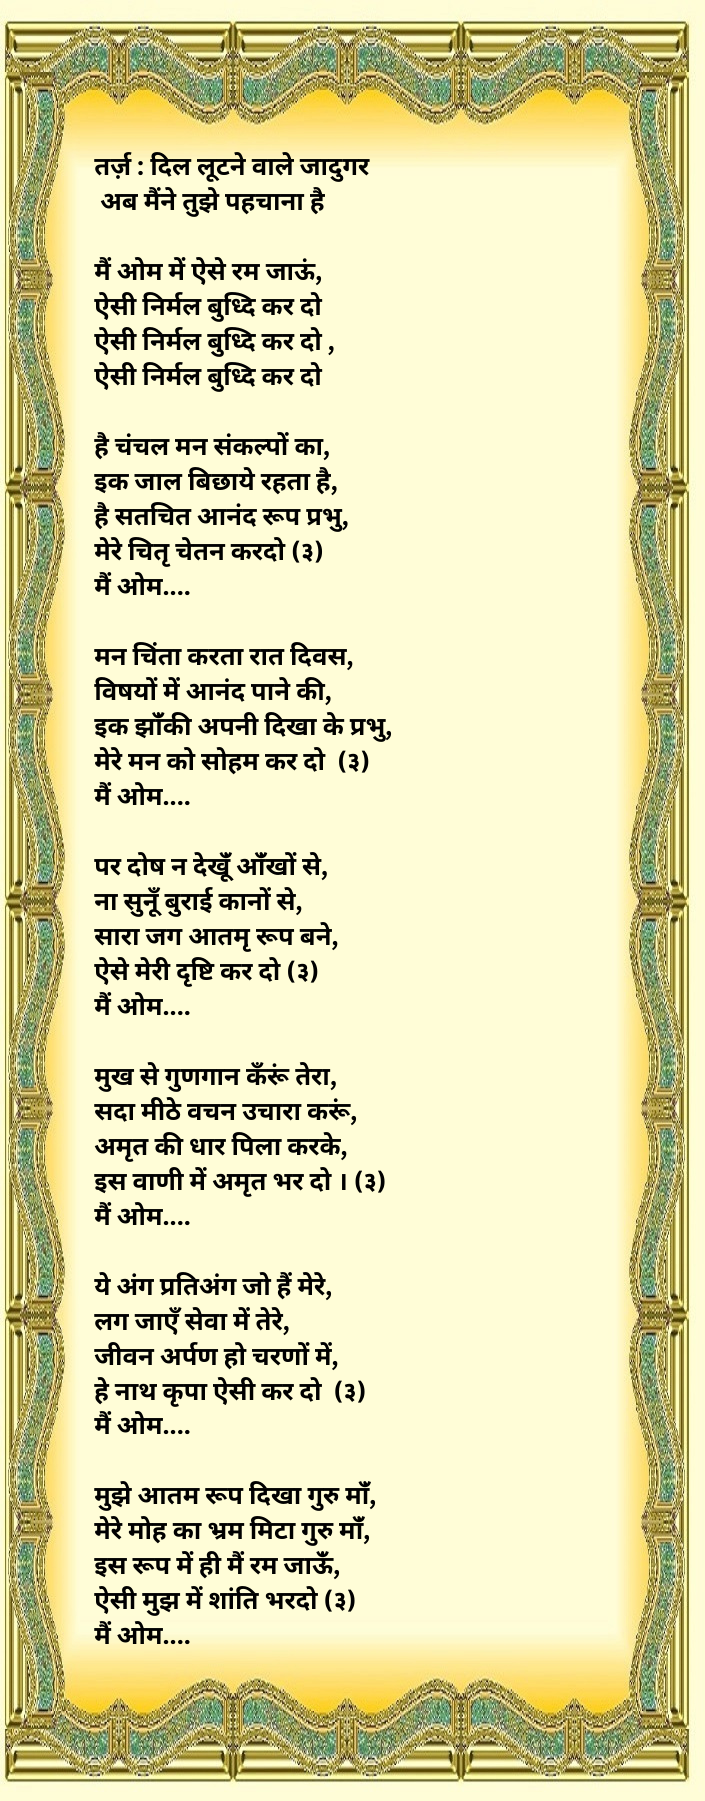 तर्ज़ : दिल लूटने वाले जादुगर
अब मैंने तुझे पहचाना है
मैं ओम में ऐसे रम जाऊं,
ऐसी निर्मल बुध्दि कर दो
ऐसी निर्मल बुध्दि कर दो ,
ऐसी निर्मल बुध्दि कर दो
है चंचल मन संकल्पों का,
इक जाल बिछाये रहता है,
है सतचित आनंद रूप प्रभु,
मेरे चितृ चेतन करदो (३)
मैं ओम....
मन चिंता करता रात दिवस,
विषयों में आनंद पाने की,
इक झाँकी अपनी दिखा के प्रभु,
मेरे मन को सोहम कर दो (३)
मैं ओम....
पर दोष न देखूँ आँखों से,
ना सुनूँ बुराई कानों से,
सारा जग आतमृ रूप बने,
ऐसे मेरी दृष्टि कर दो (३)
मैं ओम....
मुख से गुणगान कँरूं तेरा,
सदा मीठे वचन उचारा करूं,
अमृत की धार पिला करके,
इस वाणी में अमृत भर दो । (३)
मैं ओम....
ये अंग प्रतिअंग जो हैं मेरे,
लग जाएँ सेवा में तेरे,
जीवन अर्पण हो चरणों में,
हे नाथ कृपा ऐसी कर दो (३)
मैं ओम....
मुझे आतम रूप दिखा गुरु माँ,
मेरे मोह का भ्रम मिटा गुरु माँ,
इस रूप में ही मैं रम जाऊँ,
ऐसी मुझ में शांति भरदो (३)
मैं ओम....